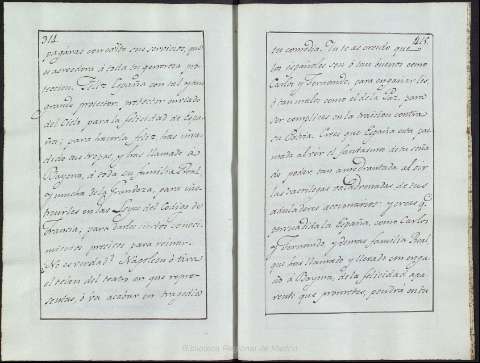 314.
pagaras con exôto sus servicios, que
es acreedora á toda tu generosa pro-
teccion. Feliz España con tal y tan
grande protector, protector enviado
del Cielo para la felicidad de Espa-
ña; para hacerla feliz has inva-
dido sus tropas, y has llamado á
Bayona, á toda su familia Real,
y mucha de la Grandeza, para ins-
truirles en las Leyes del Codigo de
Francia, para darles ciertos conoci-
mientos precisos para reinar.
No es verdad? Napoleon ó tira
el telon del teatro en que repre-
sentas, ó va acabar en tragedia
415.
tu comedia. Tu te as creido que
los españoles son ó tan buenos como
Carlos y Fernando, para engañarles,
ó tan malos como el de la Paz, para
ser complices en la traicion contra
su Patria. Crees que España esta pas-
mada al ver el fantasma de tu soña-
do poder, tan amedrantada al oir
las sacrilegas baladronadas de tus
aduladores accionantes; y crees q.
persuadida la España, como Carlos
y Fernando, y demas familia Real
que has llamado y llevado con enga-
ño á Bayona, de la felicidad apa-
rente que prometes, pondrá en tu
Biblioteca Regional de Madrid